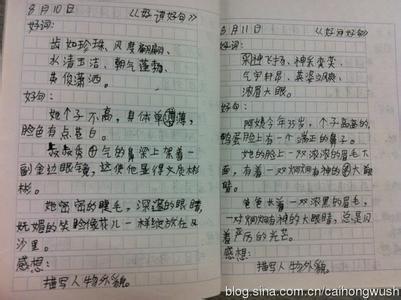 8月10日 《好词好句》
好词:
齿如珍珠、风度翩翩、
水清玉洁、朝气蓬勃、
英俊潇洒。
好句:
她个子不高,身体单薄,
脸色有点苍白。
叔叔秀气的鼻梁上架着一
副金边眼镜,这使他显得文质彬
彬。
她密密的睫毛,深邃的眼睛,
妩媚的笑脸像花儿一样绽放在
沙里。
感想:
描写人物外貌。
8月11日 《好词好句》
好词:
神采飞扬、神采奕奕、
气宇轩昂、英姿飒爽、
浓眉大眼。
好句:
阿姨今年35岁,个子高高的,
鸭蛋脸上有一个端正的鼻子。
她的脸上一双浓浓的眉毛下
面,有着一双炯炯有神的大眼
睛。
爸爸长着一双浓黑的眉毛,
一对炯炯有神的大眼睛,总是闪
着严厉的光芒。
感想:
描写人物外貌。
blog.sina.com.cn/caihongwush